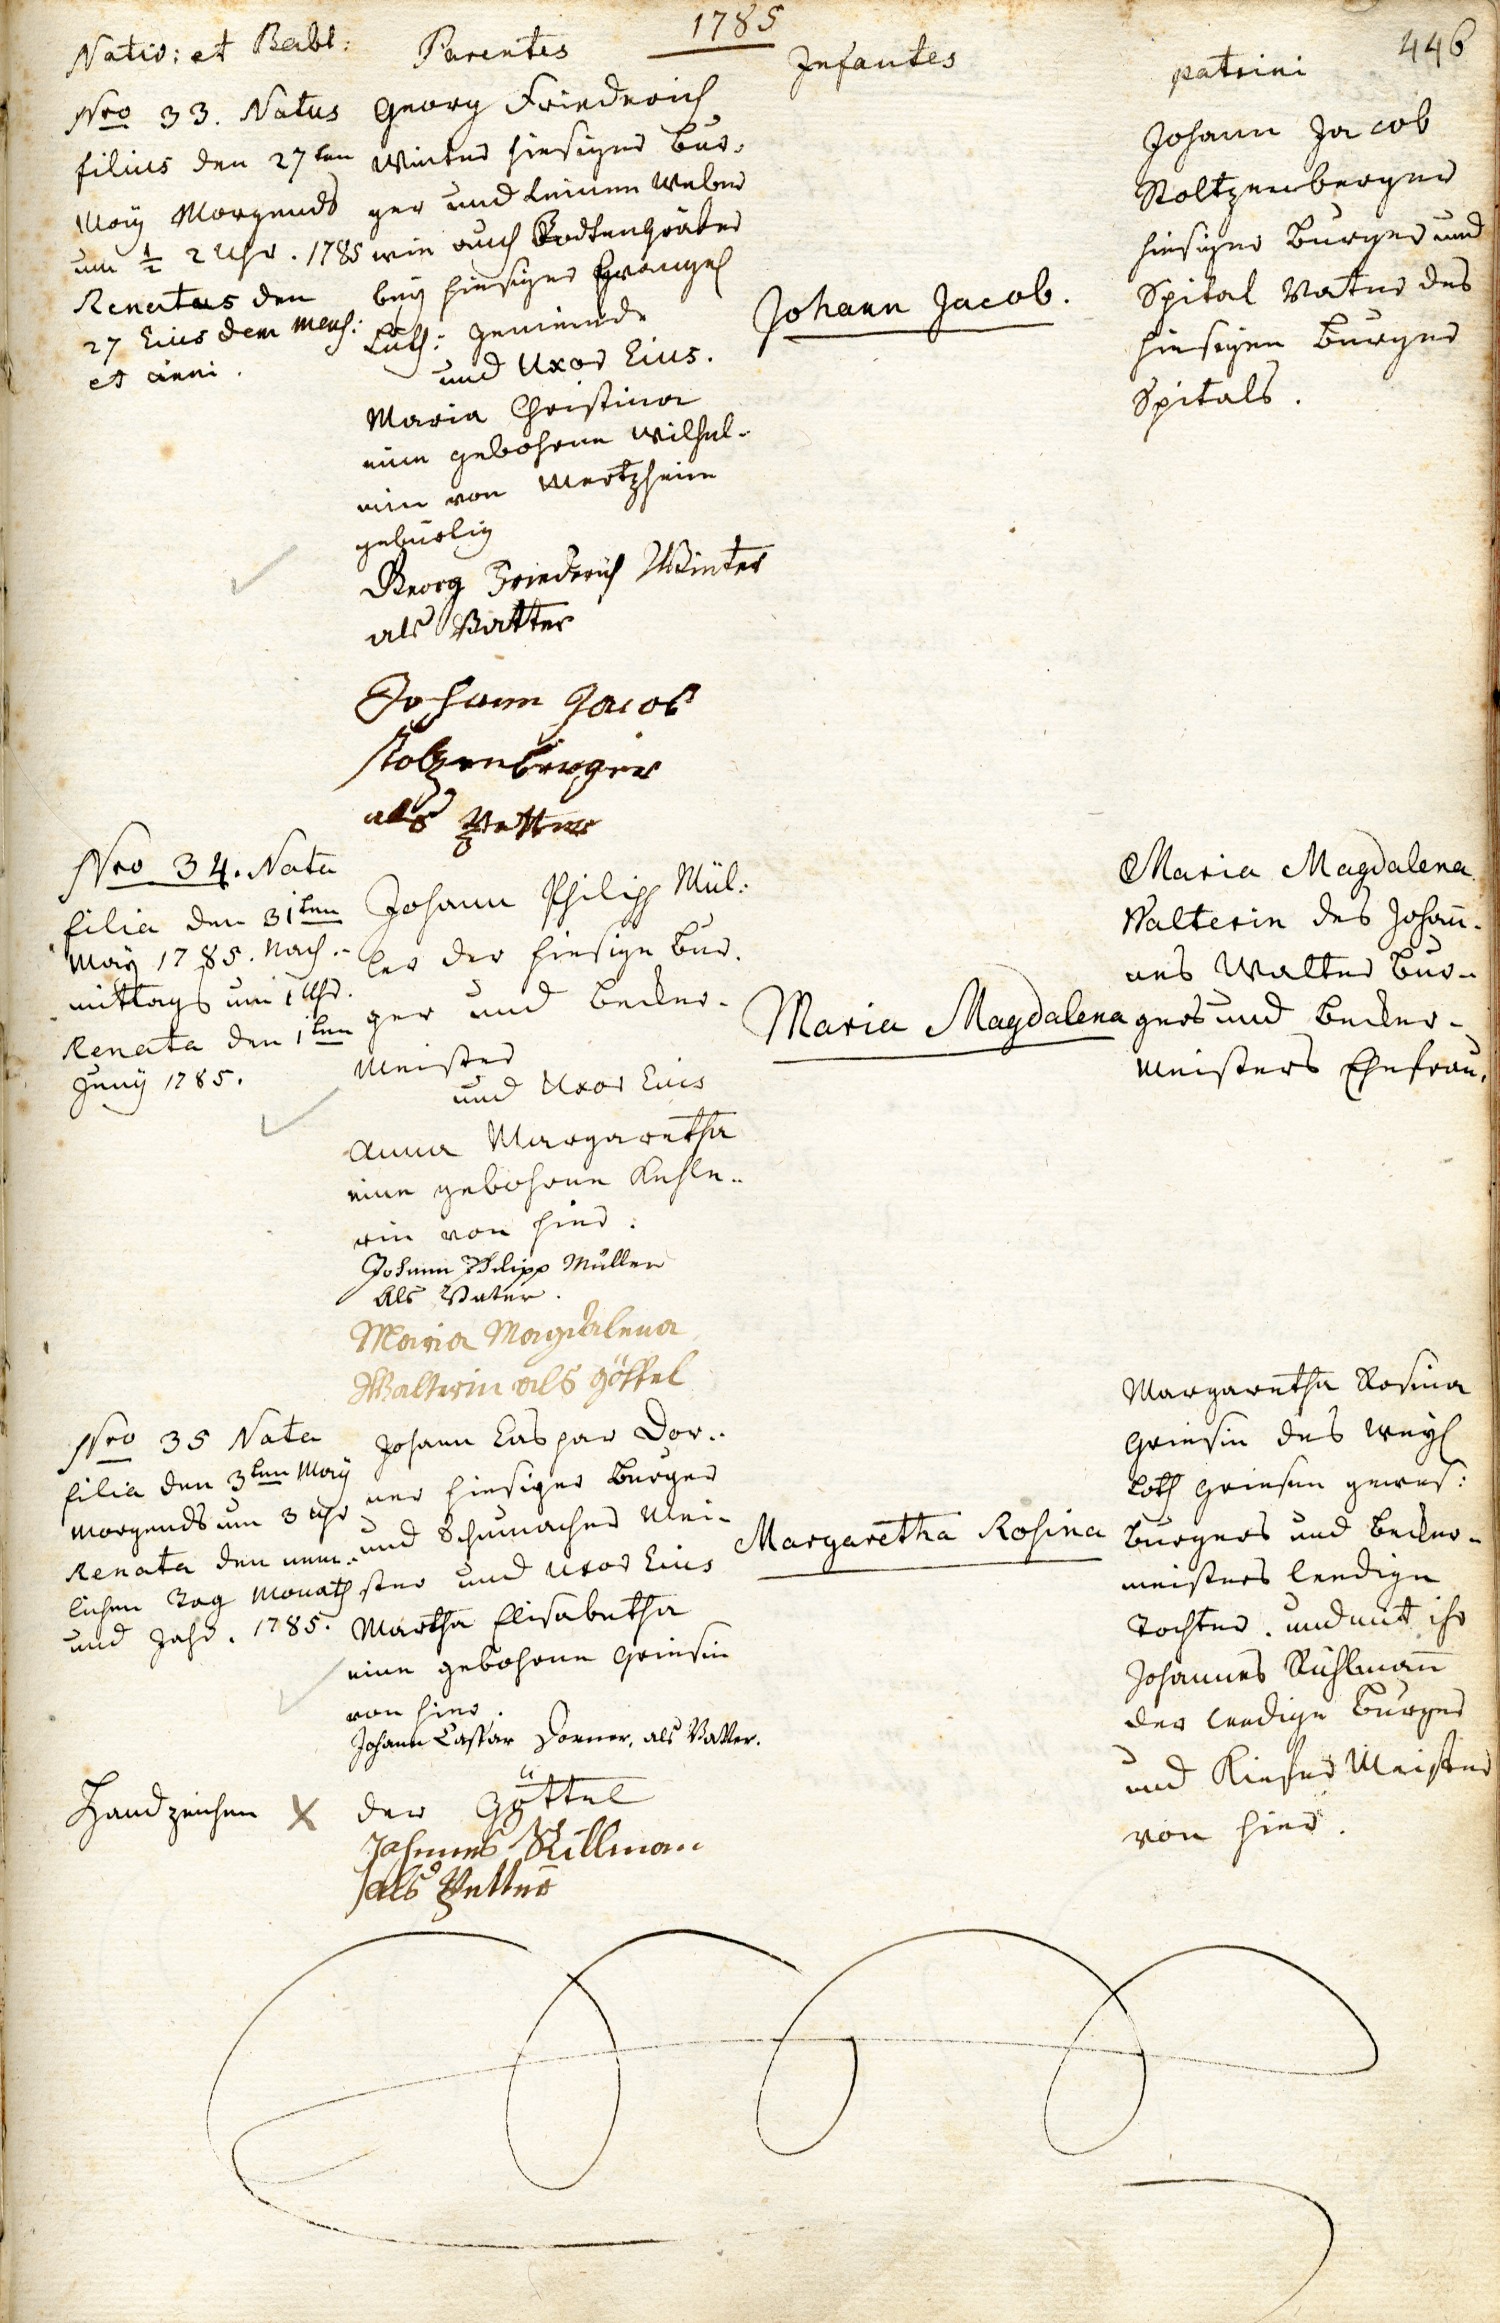 1785
446
Nativ: et Babt:
Parentes
Infantes
patrini
Nro 33. Natus
filius den 27ten
Maÿ Morgends
um ½ 2 Uhr. 1785
Renatus den
27 Eius dem mens:
et anni.
Georg Friederich
Winter hiesiger Bur-
ger und Leinen Weber
wie auch Todtengräber
beÿ hiesiger Evangel
Luth: gemeinde
und Uxor Eius.
Maria Christina
eine gebohrne Wilhel-
min von Mertzheim
gebürtig
Georg Friederich Winter
als Vatter
Johann Jacob
stolzenberger
als Petter
Johann Jacob.
Johann Jacob
Stoltzenberger
hiesiger Burger und
Spital Vater des
hiesigen Burger
Spitals.
Nro 34. Nata
filia den 31ten
Maÿ 1785. Nach-
mittags um 1 Uhr.
Renata den 1ten
Junÿ 1785.
Johann Philipp Mül-
ler der hiesige Bur-
ger und Becker-
Meister
und Uxor Eius
Anna Margaretha
eine gebohrne Kehle-
rin von hier.
Johann Philipp Müller
als Vater.
Maria Magdalena
Walterin als göttel
Maria Magdalena
Maria Magdalena
Walterin des Johan̄-
nes Walter Bur-
gers und Becker-
Meisters Ehefrau.
Nro 35 Nata
filia den 3ten Maÿ
Morgends um 3 Uhr
Renata den nem-
lichen Tag Monath
und Jahr. 1785.
Johann Caspar Dor-
ner hiesiger Burger
und Schumacher Mei-
ster und Uxor Eius
Martha Elisabetha
eine gebohrne Griesin
von hier.
Johann Casper Dorner, als Vatter.
Handzeichen X der Göttel
Johannes Rillman
als Petter
Margaretha Rosina
Margaretha Rosina
Griesin des weyl
Loth Griesen gewes:
Burgers und Becker-
meisters leedige
Tochter. und mit ihr
Johannes Rühlman̄
der leedige Burger
und Kiefer Meister
von hier.